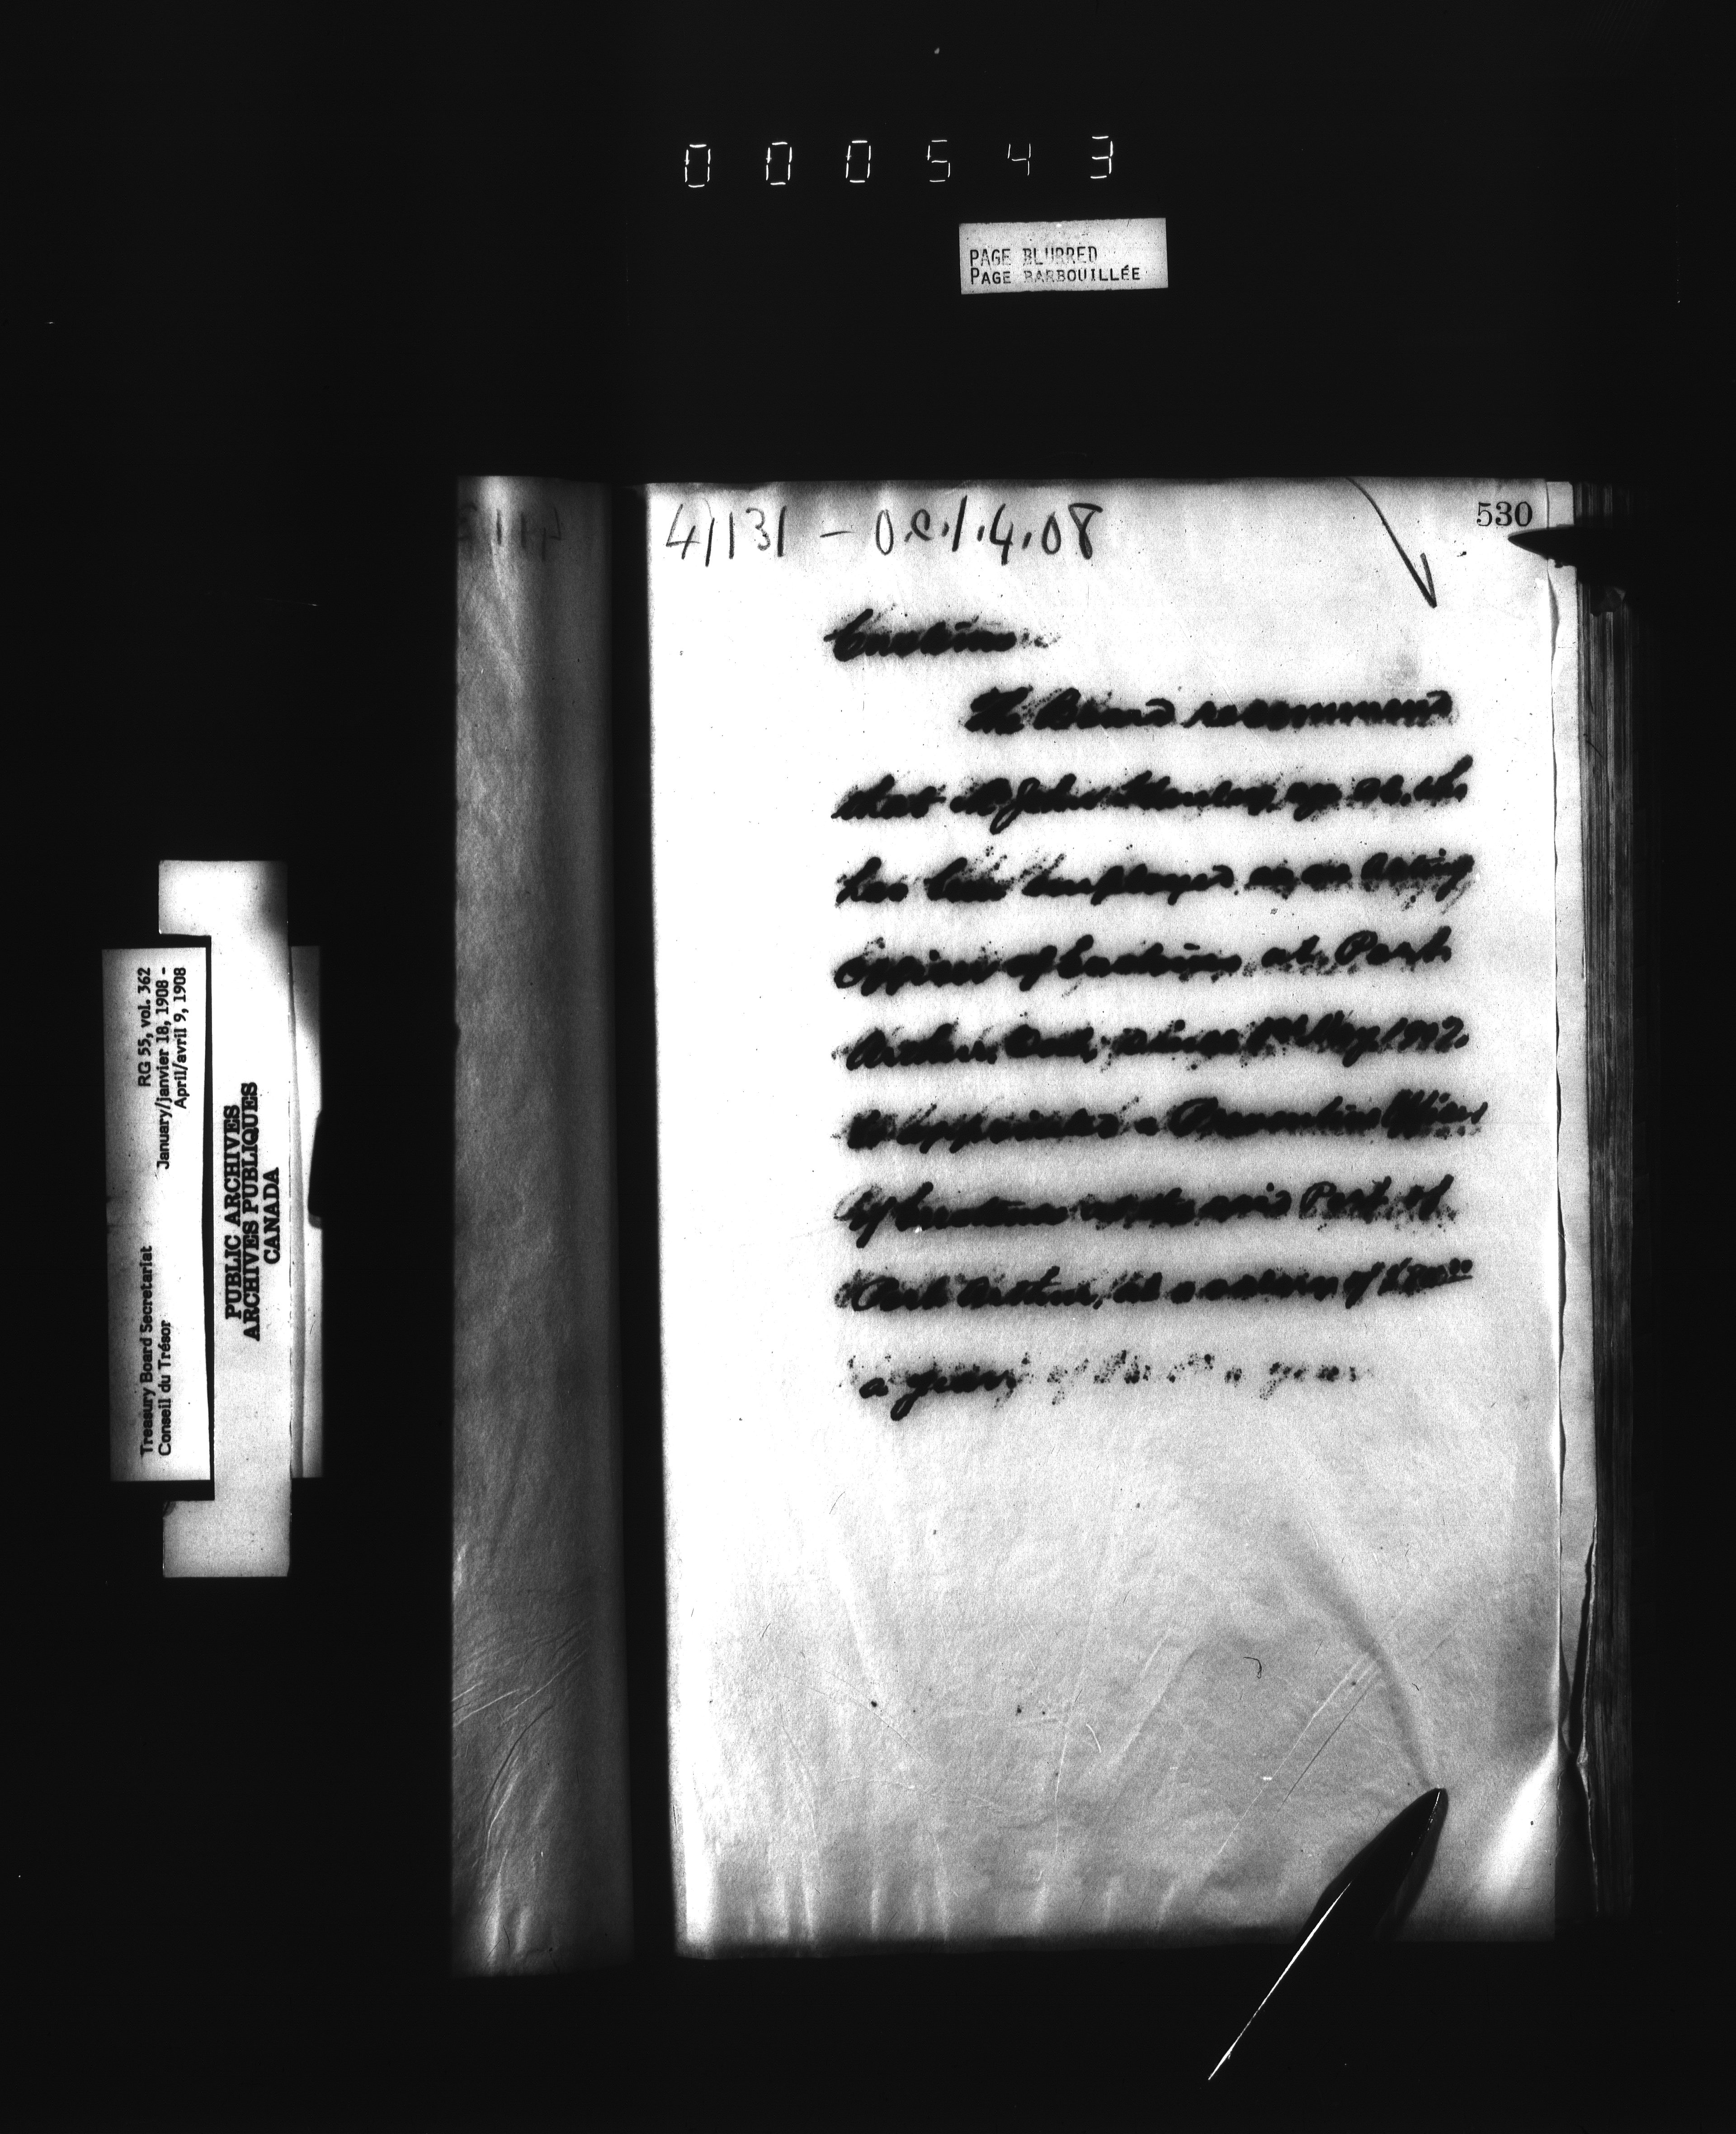 000543
PAGE BLURRED
PAGE BARBOUILLÉE
530
4/131 - O.C. 1.4.08
Customs
The Board recommend
that Mr John age
has been employed as an Acting
Officer of Customs at Port
Arthur, Ont, since 1st May
be appointed a Preventive Officer
of Customs at the said Port of
Port Arthur, at a salary of
a year
a year
RG 55, vol. 362
January/janvier 18, 1908 -
April/avril 9, 1908
Treasury Board Secretariat
Conseil du Trésor
PUBLIC ARCHIVES
ARCHIVES PUBLIQUES
CANADA